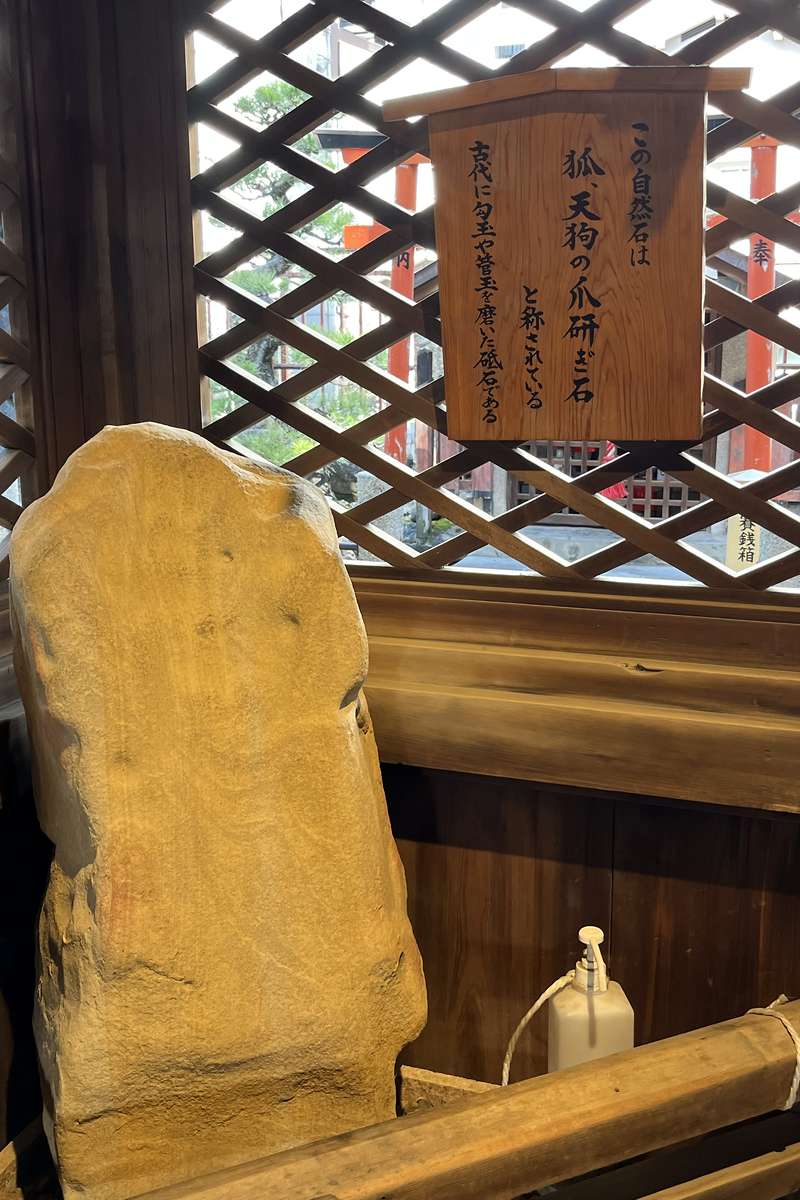 この自然石は
狐、天狗の爪研ぎ石
と称されている
古代に勾玉や管玉を磨いた砥石である
奉
内
賽銭箱